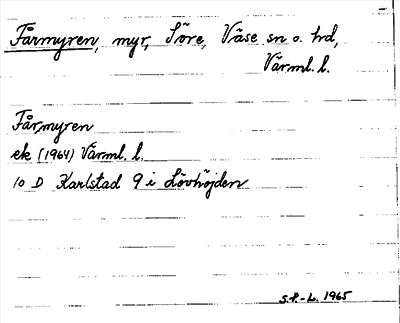 Fårmyren, myr, Söre, Väse sn o. hd,
Värml. l.
Fårmyren
ek (1964) Värml. l.
10 D Karlstad 9 i Lövhöjden
S.P.-L. 1965